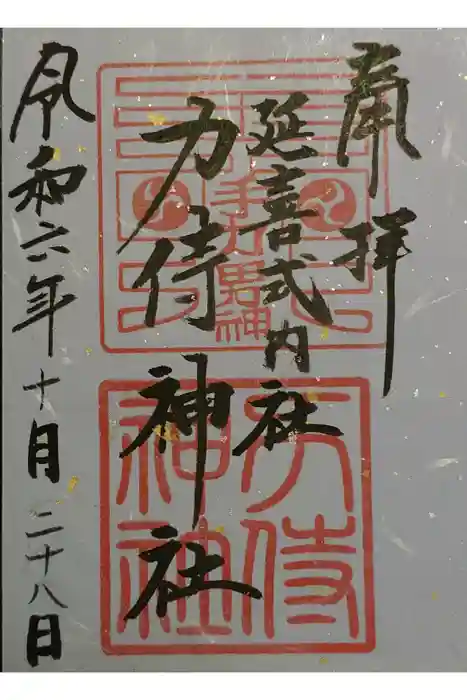 奉拝
延喜式内社
力侍神社
令和六年十月二十八日
手力男神
力侍
神社